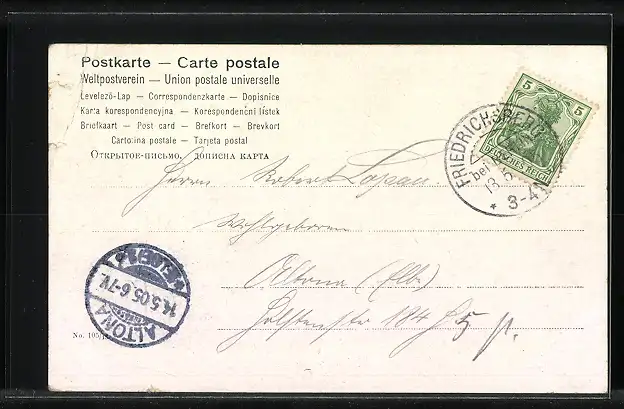 Postkarte — Carte postale
Weltpostverein — Union postale universelle
Levelező-Lap — Correspondenzkarte — Dopisnice
Karta korespondencyjna — Korespondenční lístek
Briefkaart — Post card — Brefkort — Brevkort
Cartolina postale — Tarjeta postal
Открытое письмо. дописна карта
5 5
DEUTSCHES REICH
FRIEDRICHSBERG
bei
13.5
* 3-4N
Herrn Robert
Wohlgeboren
Altona (Elbe)
Holstenstr 184
5
ALTONA
14.5.05.6-7V.
No. 105